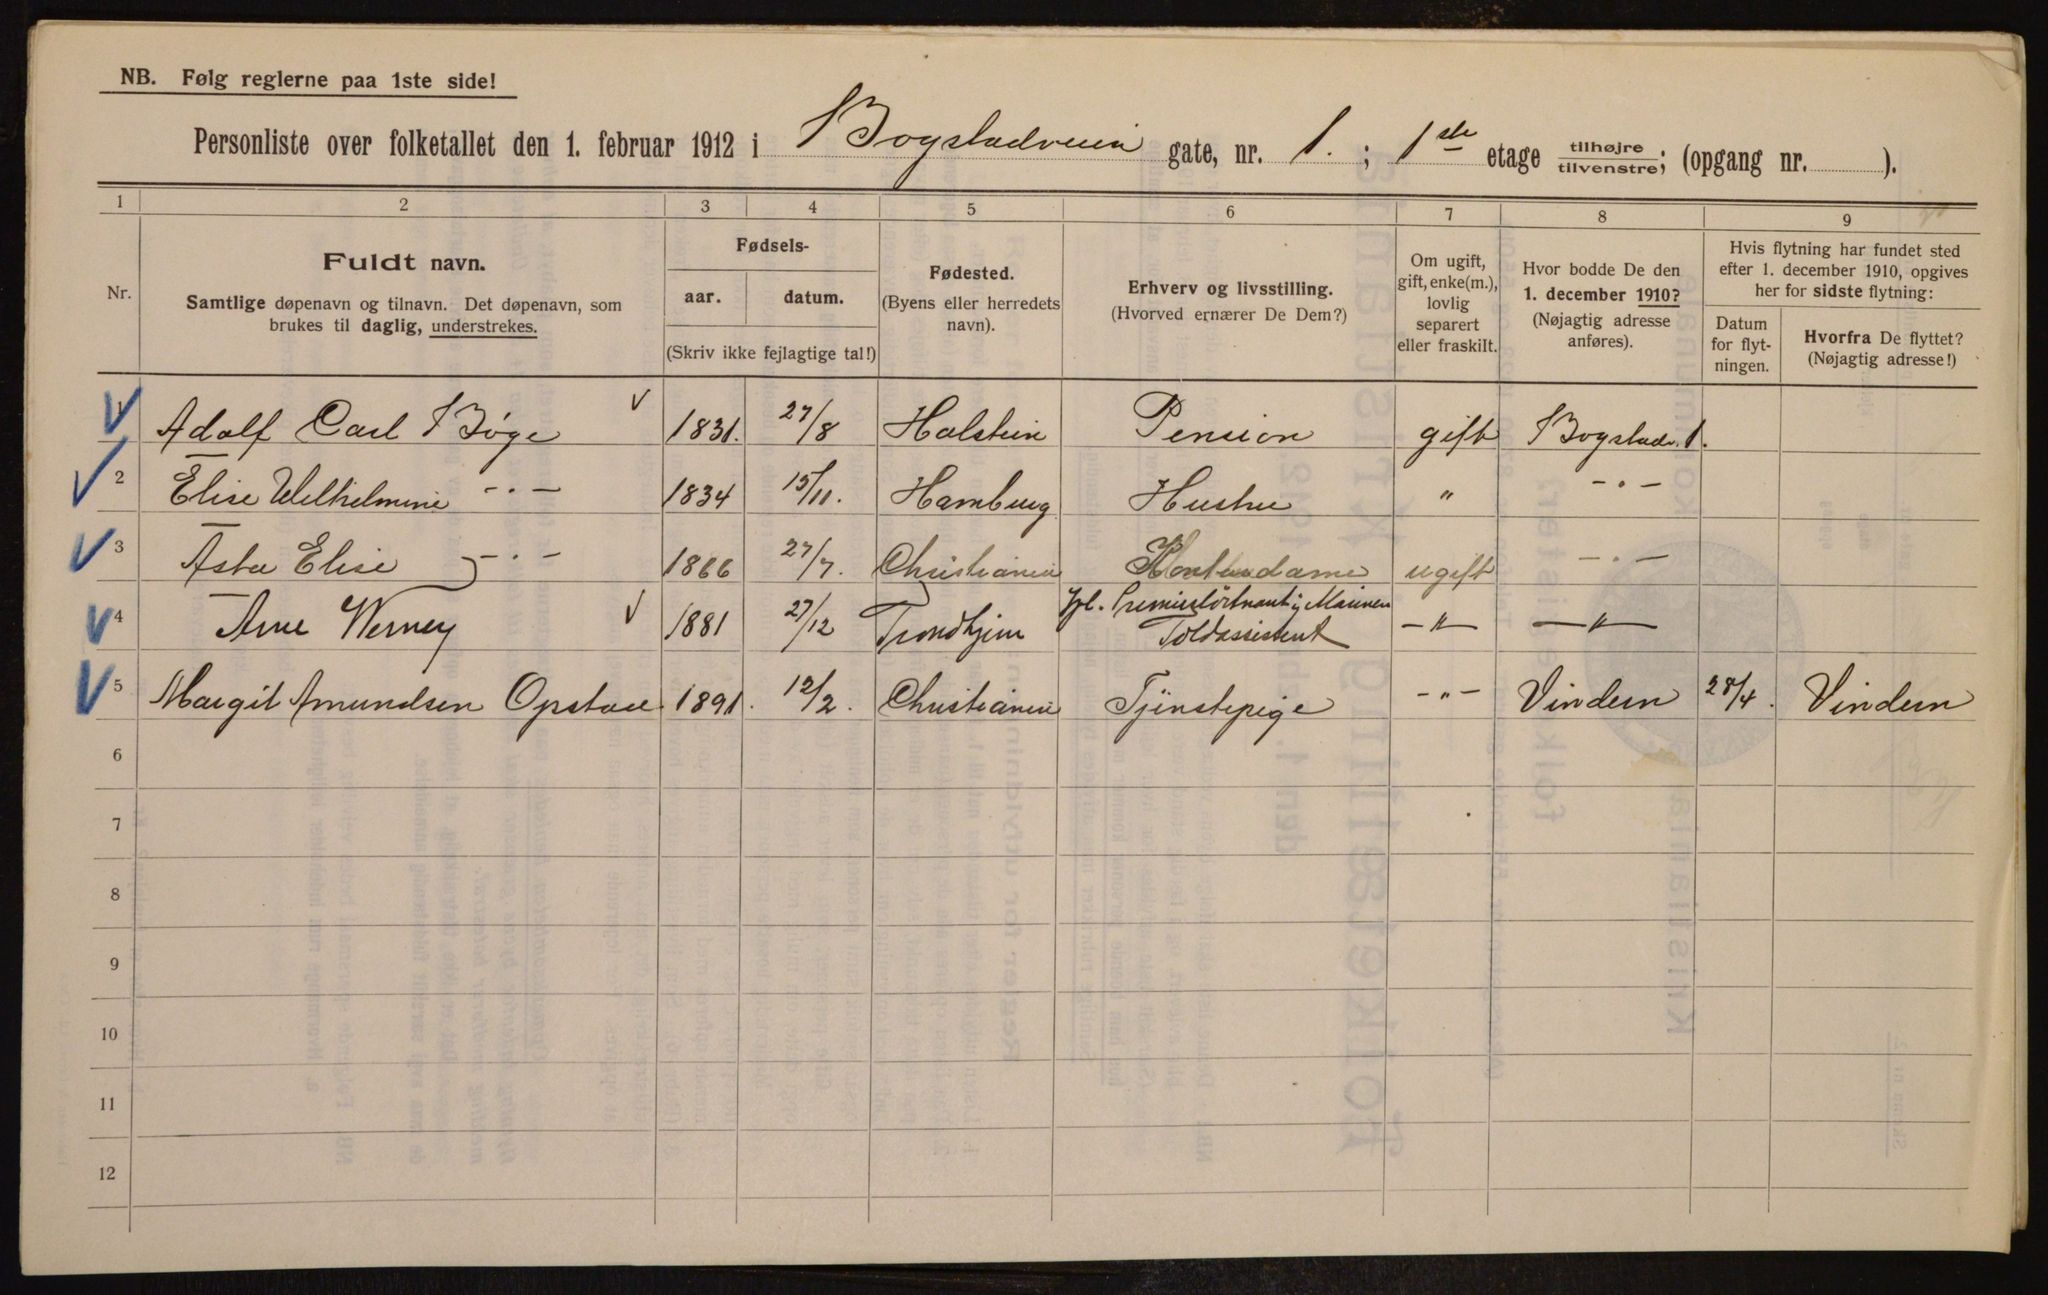 NB. Følg reglerne paa 1ste side!
Personliste over folketallet den 1. februar 1912 i Bogstadveien gate, nr. 1. ; 1ste etage tilhøjre/tilvenstre; (opgang nr. ).
1 2 3 4 5 6 7 8 9
Nr.
Fuldt navn.
Samtlige døpenavn og tilnavn. Det døpenavn, som
brukes til daglig, understrekes.
Fødsels-
aar. datum.
(Skriv ikke fejlagtige tal!)
Fødested.
(Byens eller herredets
navn).
Erhverv og livsstilling.
(Hvorved ernærer De Dem?)
Om ugift,
gift, enke(m.),
lovlig
separert
eller fraskilt.
Hvor bodde De den
1. december 1910?
(Nøjagtig adresse
anføres).
Hvis flytning har fundet sted
efter 1. december 1910, opgives
her for sidste flytning:
Datum
for flyt-
ningen.
Hvorfra De flyttet?
(Nøjagtig adresse!)
1 Adolf Carl Böge 1831. 27/8 Holstein Pension gift Bogstadv. 1.
2 Elise Wilhelmine -"- 1834 15/11. Hamburg Hustru " -"-
3 Asta Elise -"- 1866 27/7. Christiania dame ugift -"-
4 Arne Werney 1881 27/12 Trondhjem Premierløitnant i Marinen
Toldassistent -"- -"-
5 Margit Amundsen Opstad 1891. 12/2. Christiania Tjenstepige -"- Vindern 28/4. Vindern
6
7
8
9
10
11
12